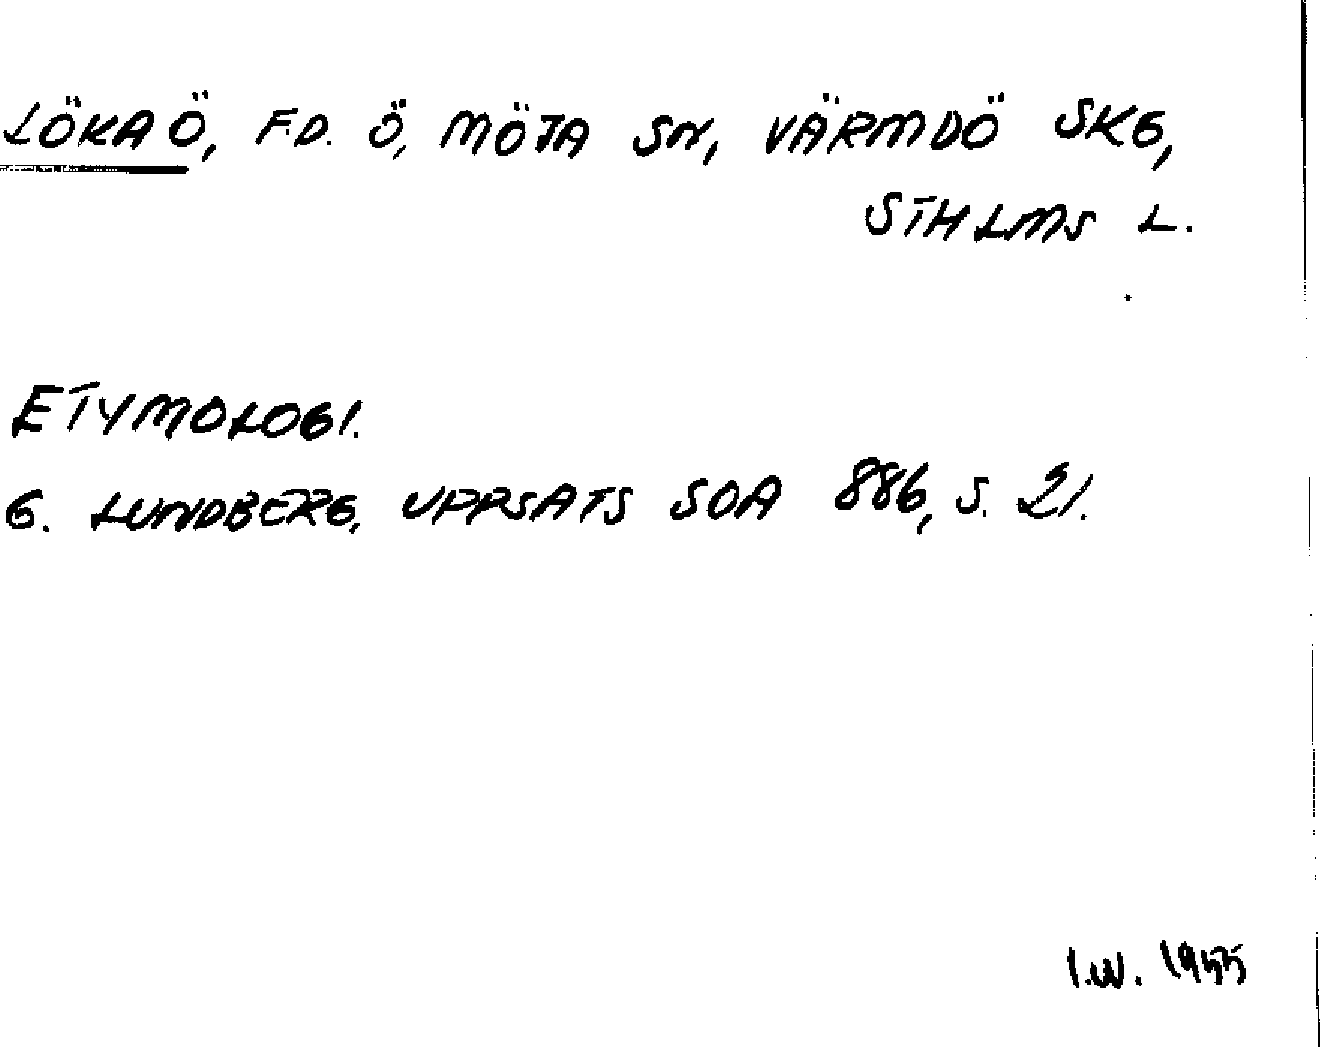 LÖKAÖ, F.D. Ö, MÖJA SN, VÄRMDÖ SKG,
STHLMS L.
ETYMOLOGI.
G. LUNDBERG, UPPSATS SOA 886, S. 21.
I.W. 1955